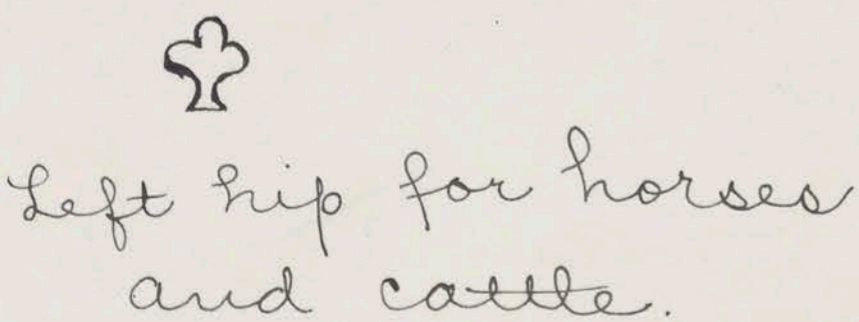 Left hip for horses
and cattle.